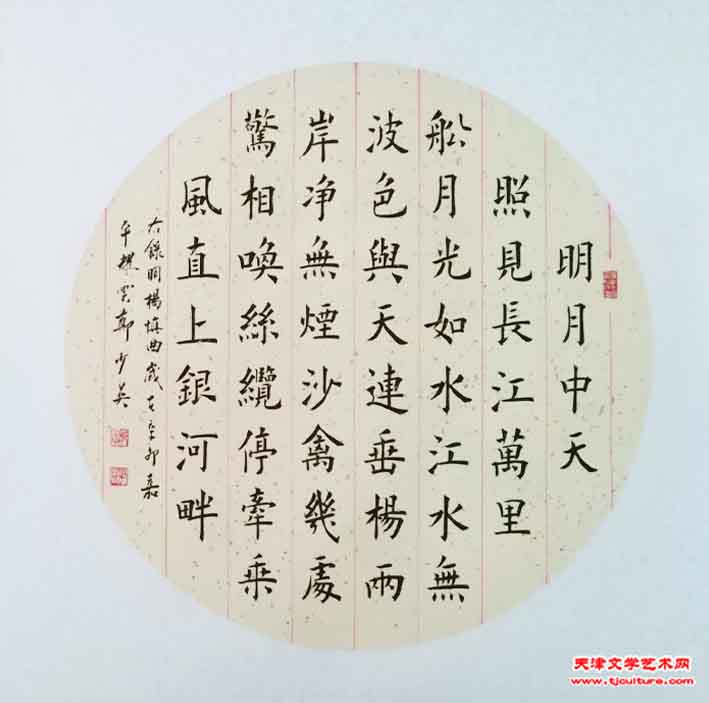 明月中天
照見長江萬里
船月光如水江水無
波色與天連垂楊兩
岸净無煙沙禽幾處
驚相喚絲纜停牽乗
風直上銀河畔
右錄明楊慎曲歲在辛卯嘉
平樸罡郭少英
天津文学艺术网
www.tjculture.com